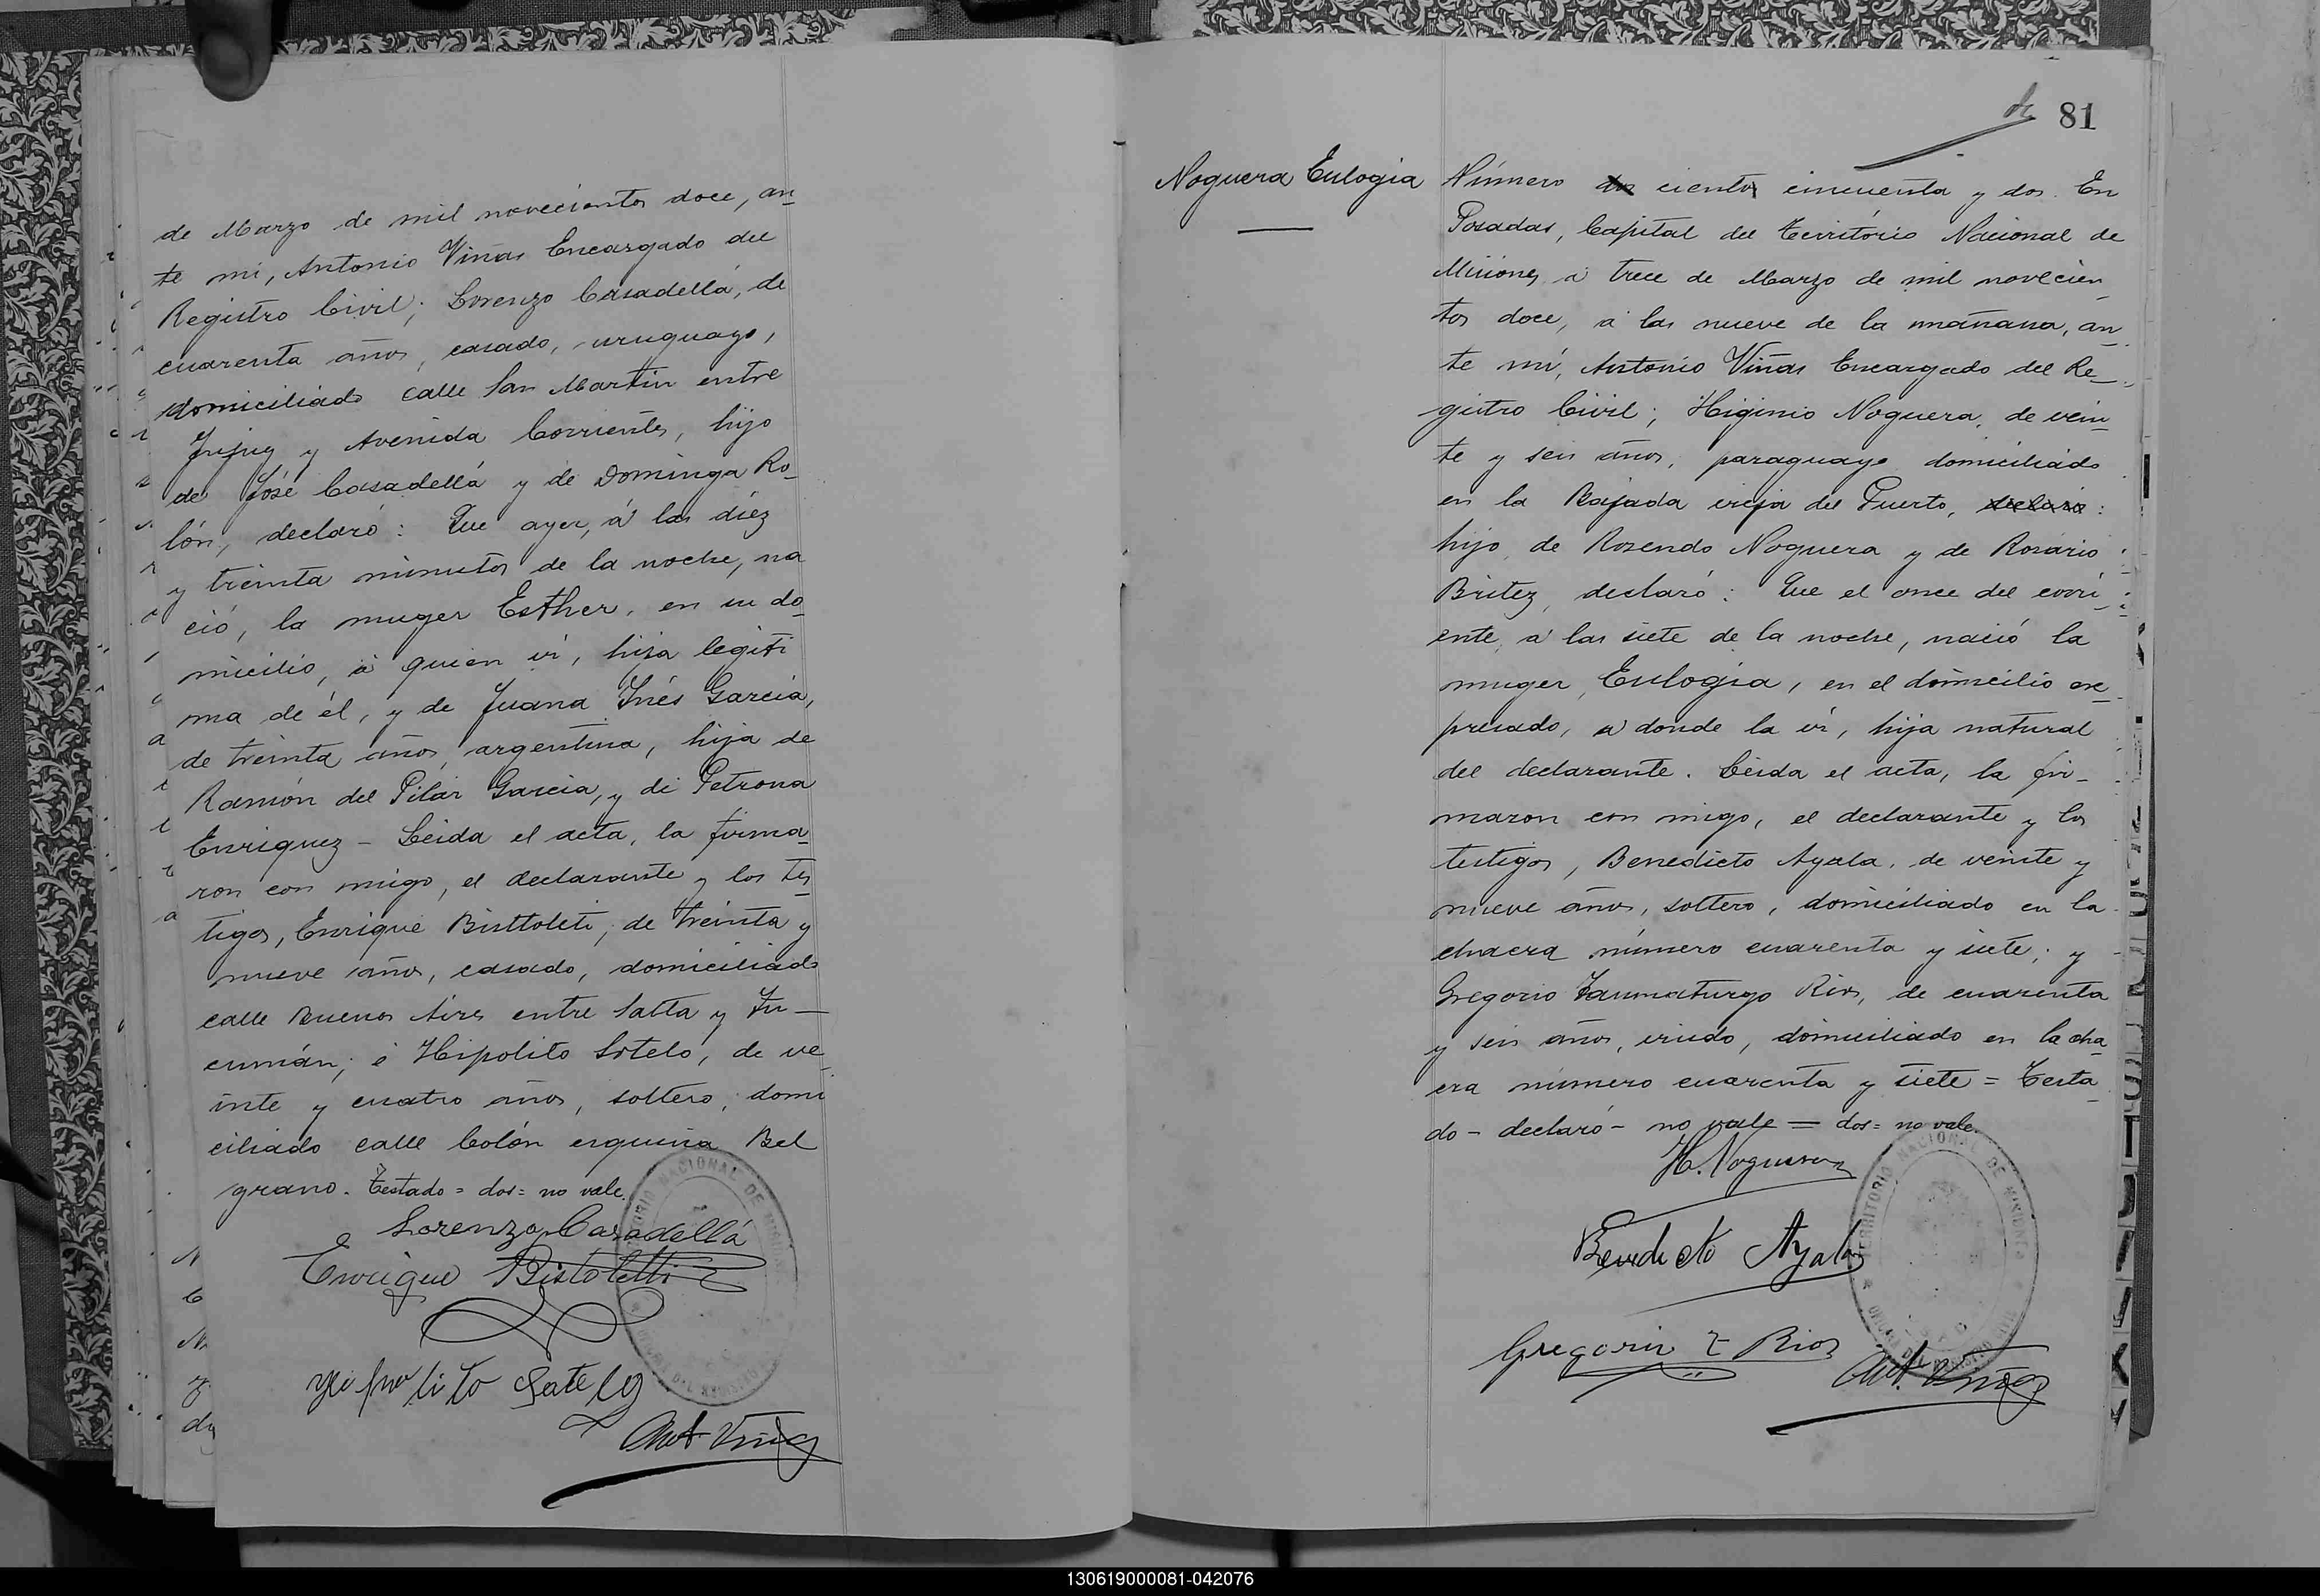 de Marzo de mil novecientos doce, an
te mi, Antonio Viñas Encargado del
Registro Civil; Lorenzo Casadellá, de
cuarenta años, casado, uruguayo,
domiciliado calle San Martin entre
Jujuy y Avenida Corrientes, hijo
de José Casadellá y de Dominga Ro_
lón, declaró: Que ayer, á las diéz
y treinta minutos de la noche, na
ció, la muger Esther, en su do_
micilio, á quien vi, hija legiti
ma de él, y de Juana Inés Garcia,
de treinta años, argentina, hija de
Ramón del Pilar Garcia, y de Petrona
Enriquez - Leida el acta, la firma_
ron con migo, el declarante y los tes
tigos, Enrique Bisttoleti, de treinta y
nueve años, casado, domiciliado
calle Buenos Aires entre Salta y Tu—
cumán; é Hipolito Sotelo, de ve_
inte y cuatro años, soltero, domi
ciliado calle Colón esquina Bel
grano. Testado = dos = no vale.
Lorenzo Casadellá
Enrique Bistoletti
Ant Viñas
81
Noguera Eulogia
Número dos cientos cincuenta y dos. En
Posadas, Capital del Território Nacional de
Misiones á trece de Marzo de mil novecien_
tos doce, á las nueve de la mañana, an_
te mi, Antonio Viñas Encargado del Re_
gistro Civil; Higinio Noguera, de vein_
te y seis años, paraguayo domiciliado
en la Bajada vieja del Puerto, declaró:
hijo de Rosendo Noguera y de Rosario
Britez, declaró: Que el once del corri_
ente, á las siete de la noche, nació la
muger, Eulogia, en el domicilio ex_
presado, á donde la vi, hija natural
del declarante. Leida el acta, la fir_
maron con migo, el declarante y los
testigos, Benedicto Ayala, de veinte y
nueve años, soltero, domiciliado en la
chacra número cuarenta y siete; y
Gregorio Taumaturgo Rios, de cuarenta
y seis años, viudo, domiciliado en la cha_
cra número cuarenta y siete = Testa_
do - declaró - no vale = dos = no vale.
H. Noguera
Benedicto Ayala
Gregorio T Rios
Ant. Viñas
130619000081-042076